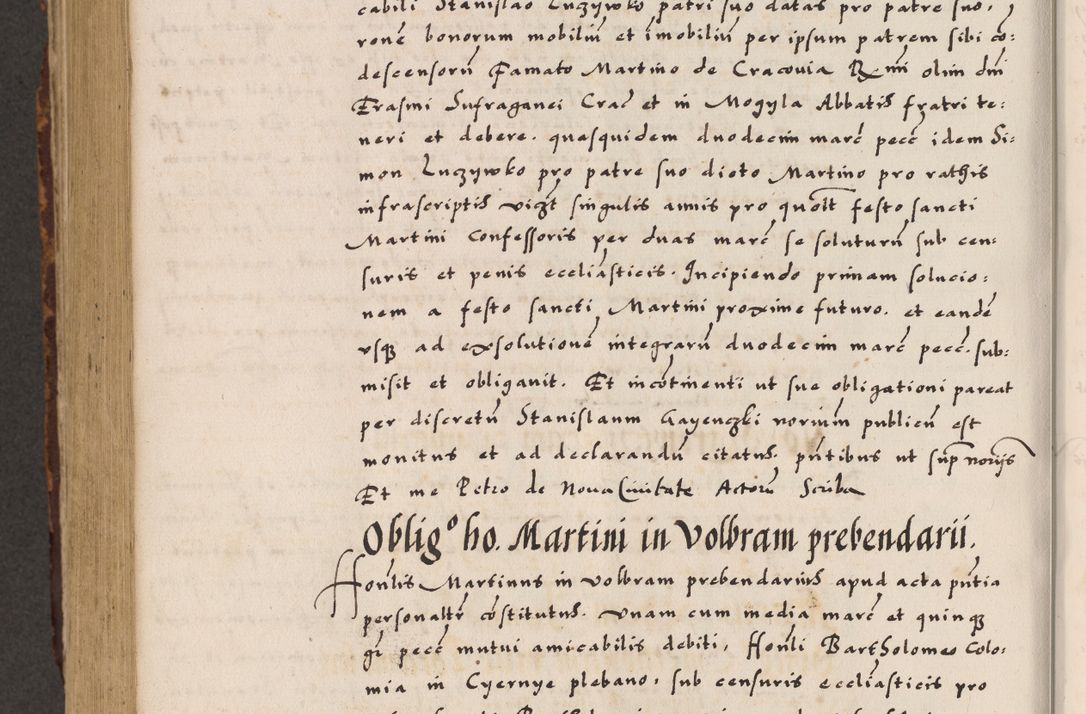 cabili Stanislao Luczywko patri suo datas pro patre suo,
rone bonorum mobiliū et īmobiliū per ipsum patrem sibi cō:
descensorū Famato Martino de Cracovia Rmi olim dni
Erasmi Sufraganei Crac̄ et in Mogyla Abbatis fratri te:
neri et debere. quasquidem duodecim marc̄ pecc̄ idem Si:
mon Luczywko pro patre suo dicto Martino pro rathis
infrascriptis viczt singulis annis pro quolt festo sancti
Martini Confessoris per duas marc̄ se soluturū sub cen:
suris et penis eccliasticis. Incipiendo primam solucio:
nem a festo sancti Martini proxime futuro. et eandē
vsq3 ad exsolutionē integrarū duodecim marc̄ pecc̄. sub:
misit et obligavit. Et incōtinenti ut sue obligationi pareat
per discretū Stanislaum Gayenczki norium publicū est
monitus et ad declarandū citatus. pñtibus ut sup̄ norijs
Et me Petro de Nova Civitate Actorū Scriba
Obligº ho. Martini in Volbram prebendarii.
Honlis Martinus in Volbram prebendarius apud acta pñtia
personaltr̄ cōstitutus. Vnam cum media marc̄ et quinq3
gr̄ pecc̄ mutui amicabilis debiti, Honli Bartholomeo Colo:
mia in Cyernye plebano, sub censuris eccliasticis pro